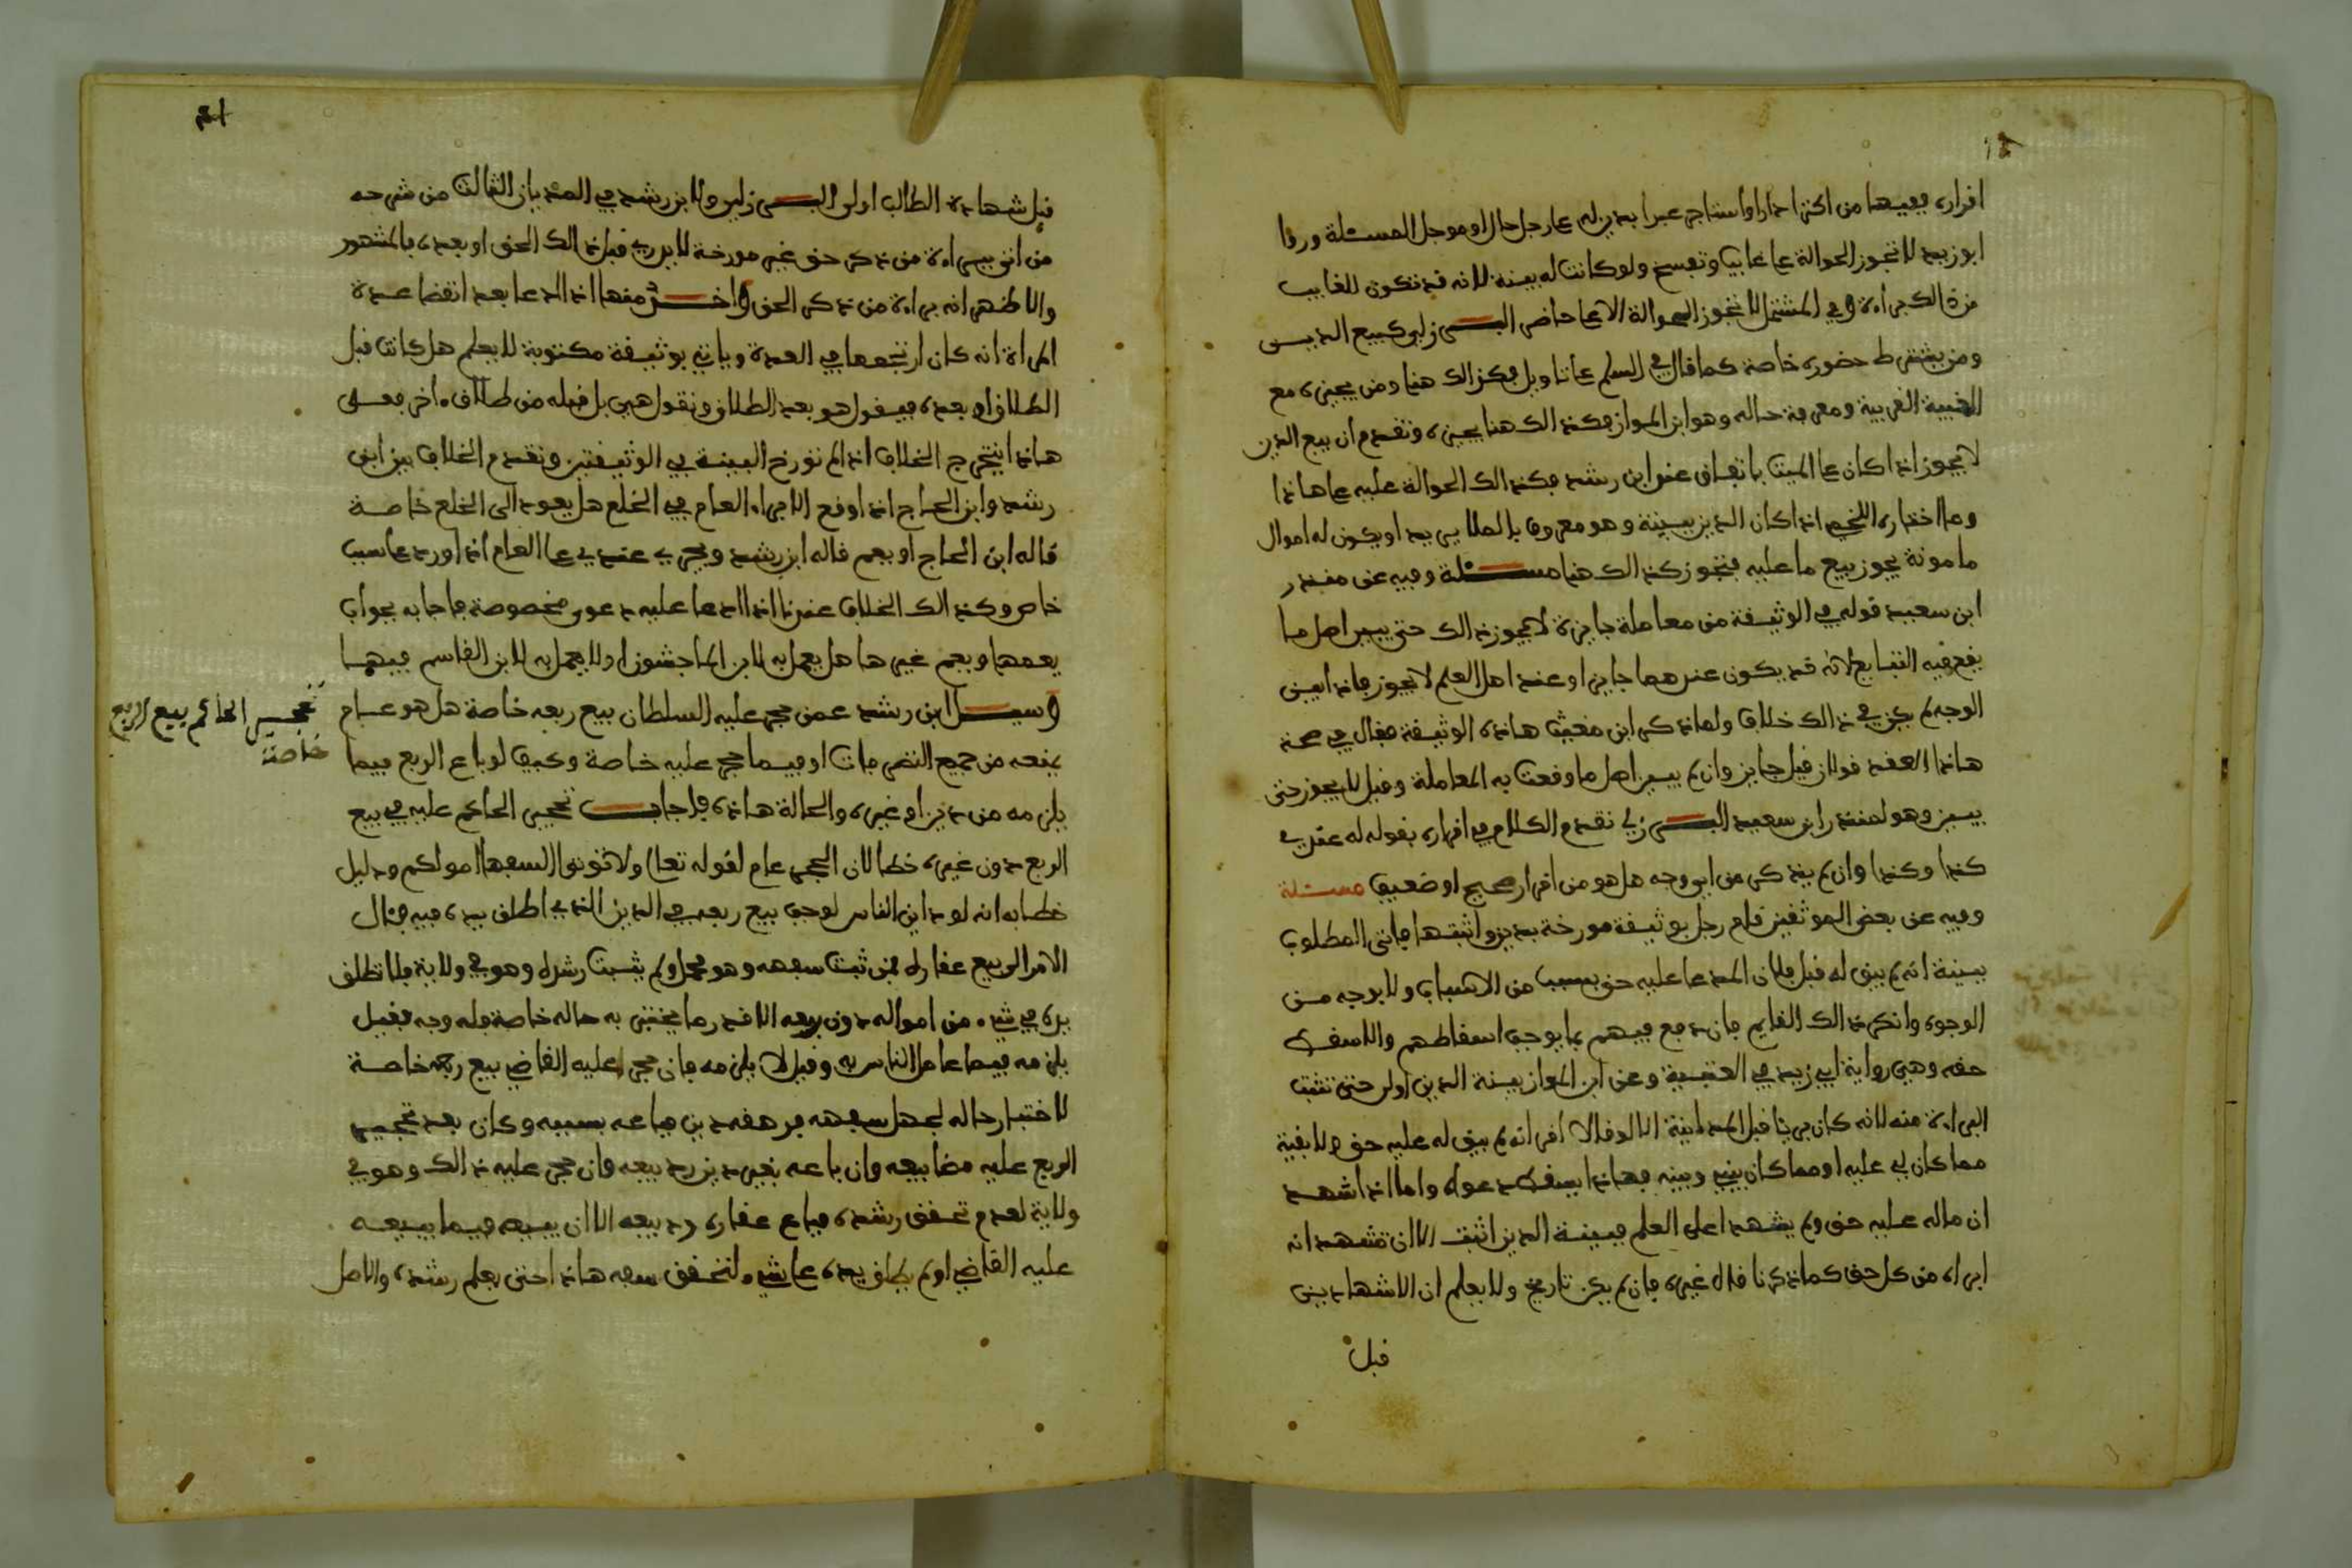 اقراره ففيها من اكترا دارا او استاجر عبدا بدين له على رجل حال او موجل المسئلة وروا
ابو زيد لا تجوز الحوالة على غايب وتفسخ ولو كانت له بينة لانه قد تكون للغايب
من ذالك براءة وفي المشتمل لا تجوز الحوالة الا على حاضر البـــرزلي كبيع الديــن
ومن يشترط حضوره خاصة كما قال في السلم على تاويل فكذالك هنا ومن يجيزه مع
الغيبة القريبة ومعرفة حاله وهو ابن المواز فكذالك هنا يجيزه وتقدم ان بيع الدين
لا يجوز اذا كان على الميت باتفاق عند ابن رشد فكذالك الحوالة عليه على هاذا
وما اختاره اللخمي اذا كان الدين ببينة وهو معروف بالملا يريد او يكون له اموال
مامونة يجوز بيع ما عليه فتجوز كذالك هنا مســـئلة وفيه عن منذر
ابن سعيد قوله في الوثيقة من معاملة جايزة لا يجوز ذالك حتى يبين اصل ما
يقع فيه التبايع لانه قد يكون عندهما جايز او عند اهل العلم لا يجوز فاذا بين
الوجه لم يكن في ذالك خلاف ولما ذكر ابن مغيث هاذه الوثيقة فقال في صحة
هاذا العقد قولان قيل جايز وان لم يبين اصل ما وقعت به المعاملة وقيل لا يجوز حتى
يبين وهو لمنذر ابن سعيد البـــرزلي تقدم الكلام في اقراره بقوله له عندي
كذا وكذا وان لم يذكر من اي وجه هل هو من اقرار صحيح او ضعيف مسئلة
وفيه عن بعض الموثقين قام رجل بوثيقة مورخة بدين واثبتها فاتى المطلوب
ببينة انه لم يبق له قبل فلان المدعا عليه حق بسبب من الاسباب ولا بوجه مــن
الوجوه وانكر ذالك القايم فان دفع فيهم بما يوجب اسقاطهم والا سقط
حقه وهي رواية ابي زيد في العتبية وعن ابن المواز بينة الدين اولى حتى تثبت
البراءة منه لانه كان بريا قبل المداينة الا لو قال لا اقر انه لم يبق له عليه حق ولا بقية
مما كان لي عليه او مما كان بيني وبينه فهاذا يسقط دعواه واما اذا شهــد
ان ماله عليه حق ولم يشهد اعلى العلم فبينة الدين اثبت الا ان تشهد انه
ابراه من كل حق كما ذكرنا قال غيره فان لم يكن تاريخ ولا يعلم ان الاشهاد بين
قبل
قبل شهادة الطالب اولى البـــرزلي ولابن رشد في المديان الثالث من شرحه
من اتى ببراءة من ذكر حق غير مورخة لا يدري قبل ذالك الحق او بعده فالمشهور
والاظهر انه براءة من ذكر الحق واخــــذ منها اذا ادعا بعد انقضا عــدة
المراة انه كان ارتجعها في العدة وياتي بوثيقة مكتوبة لا يعلم هل كانت قبل
الطلاق او بعده فيقول هو بعد الطلاق وتقول هي بل قبله من طلاق اخر فعلى
هاذا يتخرج الخلاف اذا لم تورخ البينة في الوثيقتين وتقدم الخلاف بين ابن
رشد وابن الحاج اذا اوقع الابراء العام في الخلع هل يعود الى الخلع خاصــة
قاله ابن الحاج او يعم قاله ابن رشد ويجري عندي على العام اذا ورد على سبب
خاص وكذالك الخلاف عندنا اذا ادعا عليه دعوى مخصوصة فاجابه بجواب
يعمها ويعم غيرها هل يعمل به لابن الماجشون او لا يعمل به لابن القاسم فيهمــا
وسيـــل ابن رشد عمن حجر عليه السلطان بيع ربعه خاصة هل هو عــام
يمنعه من جميع التصرفات او فيما حجر عليه خاصة وكيف لو باع الربع فيما
يلزمه من دين او غيره والحالة هاذه فاجابـــ تحجير الحاكم عليه في بيع
الربع دون غيره خطا لان الحجر عام لقوله تعالى ولا توتوا السفها اموالكم ودليل
خطابه انه لو داين الناس لوجب بيع ربعه في الدين الذي اطلق يده فيه فئال
الامر الى بيع عقاره فمن ثبت سفهه وهو مهمل ولم يثبت رشده وهو في ولاية فلا تطلق
يده في شيء من امواله دون ربعه الا قدر ما يختبر به حاله خاصة فله وجه فقيل
يلزمه فيما عامل الناس به وقيل لا يلزمه فان حجر عليه القاضي بيع ربعه خاصــة
لاختبار حاله لجهل سفهه فرهقه دين فباعه بسببه وكان بعد تحجير
الربع عليه مضا بيعه وان باعه بغير دين رد بيعه وان حجر عليه ذالك وهو في
ولاية لعدم تحقق رشده فباع عقاره رد بيعه الا ان يبيعه فيما يبيعــه
عليه القاضي او لم يطلق يده على شيء لتحقق سفه هاذا حتى يعلم رشده والاصل
تحجير الحاكم بيع الربع
خاصة